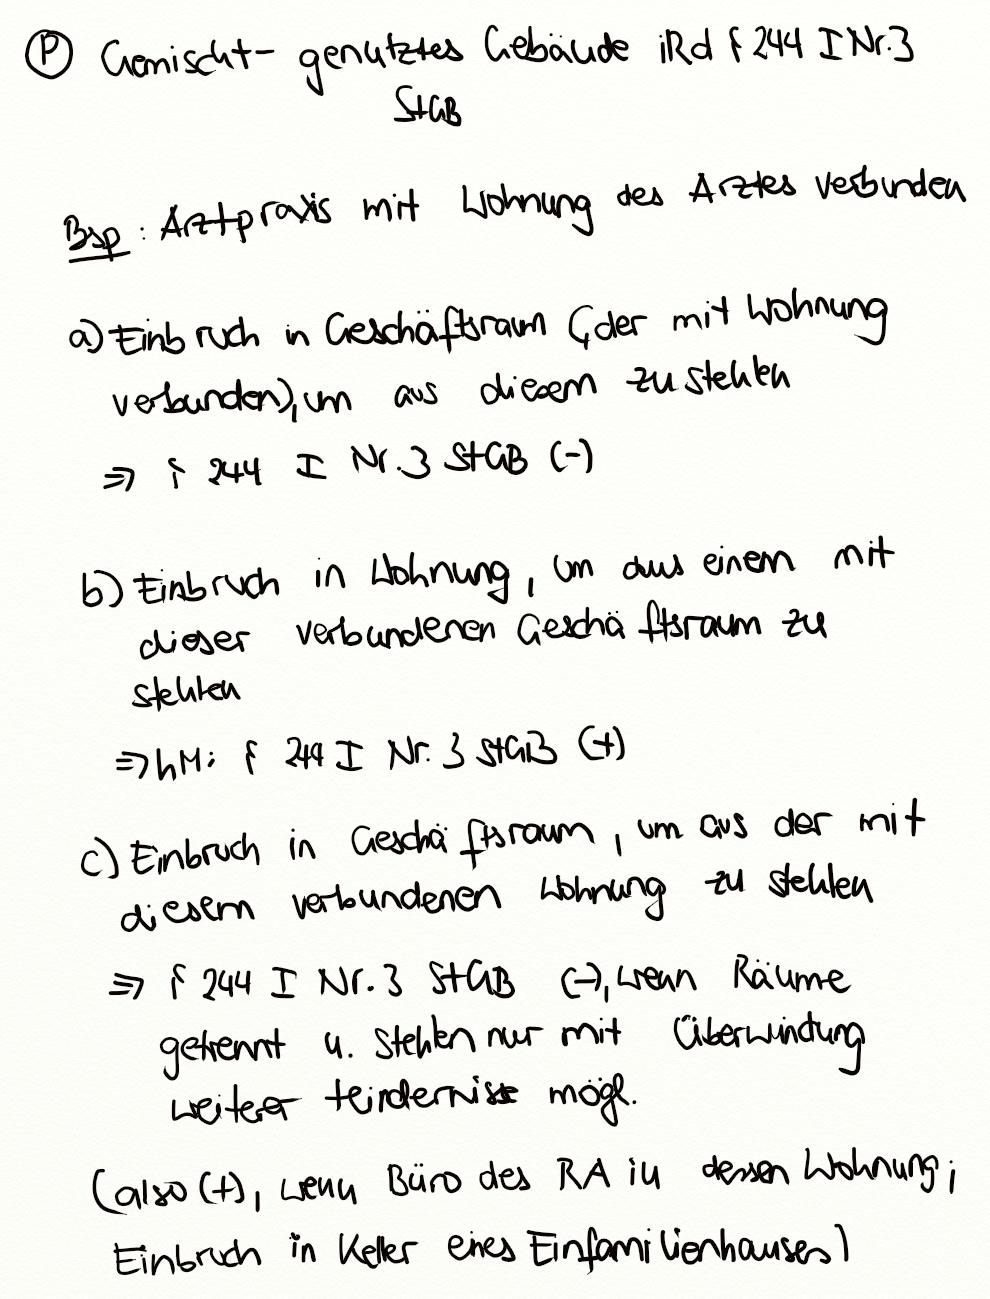 Ⓟ Gemischt- genutztes Gebäude iRd § 244 I Nr. 3
StGB
Bsp: Arztpraxis mit Wohnung des Arztes verbunden
a) Einbruch in Geschäftsraum (der mit Wohnung
verbunden), um aus diesem zu stehlen
⇒ § 244 I Nr. 3 StGB (-)
b) Einbruch in Wohnung, um aus einem mit
dieser verbundenen Geschäftsraum zu
stehlen
⇒ hM: § 244 I Nr. 3 StGB (+)
c) Einbruch in Geschäftsraum, um aus der mit
diesem verbundenen Wohnung zu stehlen
⇒ § 244 I Nr. 3 StGB (-), wenn Räume
getrennt u. stehlen nur mit Überwindung
weiterer Hindernisse mögl.
(also (+), wenn Büro des RA in dessen Wohnung;
Einbruch in Keller eines Einfamilienhauses)